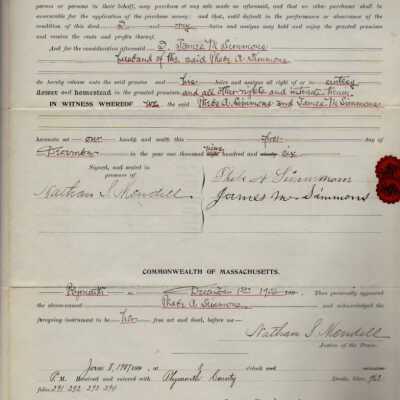 person or persons to their behalf, any purchase of any sale made as aforesaid, and that no other purchaser shall be
answerable for the application of the purchase money: and that, until default in the performance or observance of the
condition of this deed I or my heirs and assigns may hold and enjoy the granted premises
and receive the rents and profits thereof.
And for the consideration aforesaid I, James M Simmons
husband of the said Phebe A Simmons
do hereby release unto the said grantee and his heirs and assigns all right of or to
dower and homestead in the granted premises, and all other rights and interests therein
IN WITNESS WHEREOF we the said Phebe A Simmons and James M Simmons
hereunto set our hands and seals this first day of
December in the year one thousand nine hundred and six
Signed, and sealed in
presence of
Nathan S. Mendell
Phebe A Simmons
James M. Simmons
COMMONWEALTH OF MASSACHUSETTS.
Plymouth ss December 1st 1906 Then personally appeared
the above-named Phebe A Simmons and acknowledged the
foregoing instrument to be her free act and deed, before me
Nathan S. Mendell
Justice of the Peace.
1907 at o'clock
P.M. Received and entered with Plymouth County Deeds, libro
folio 291 292 293 294